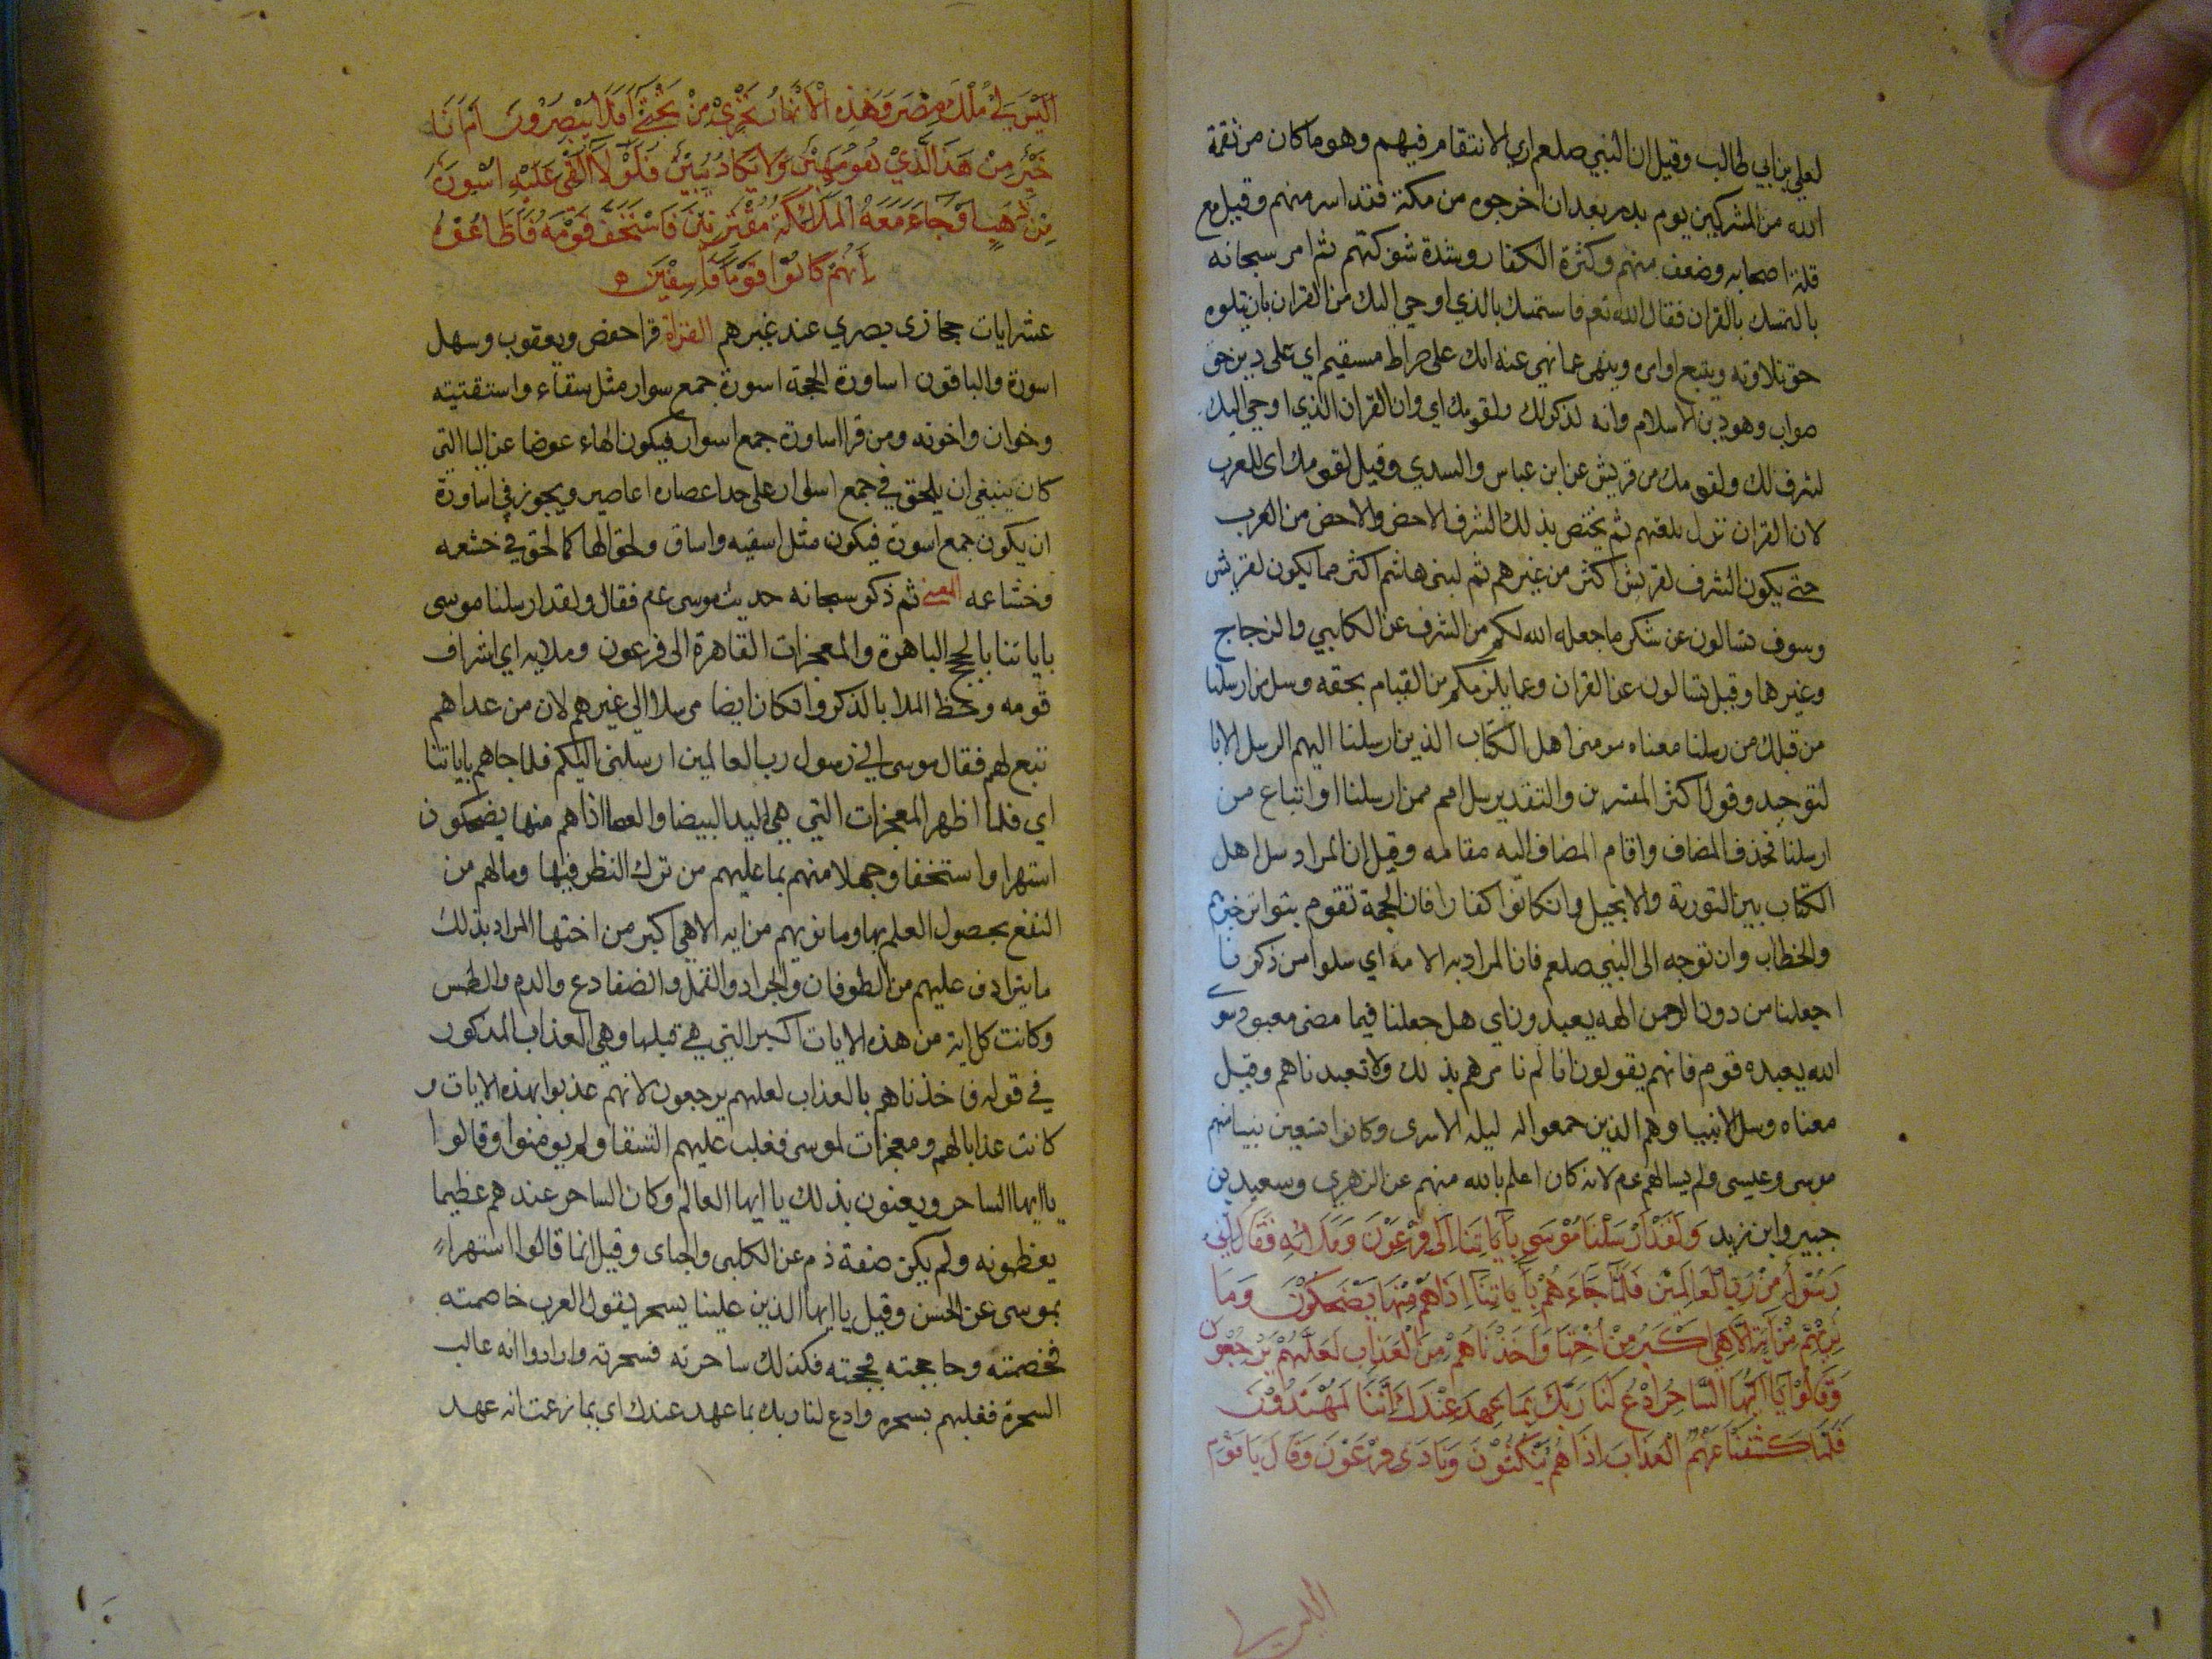 لعلي بن ابي طالب وقيل ان النبي صلعم اري الانتقام فيهم وهو ما كان من نقمة
الله من المشركين يوم بدر بعد ان اخرجوه من مكة فقد اسر منهم وقيل مع
قلة اصحابه وضعف منهم وكثرة الكفار وشدة شوكتهم ثم امر سبحانه
بالتمسك بالقران فقال الله تعم فاستمسك بالذي اوحي اليك من القران بان يتلوه
حق تلاوته ويتبع اوامره وينهى عما نهي عنه انك على صراط مستقيم اي على دين حق
صواب وهو دين الاسلام وانه لذكر لك ولقومك اي وان القران الذي اوحي اليك
لشرف لك ولقومك من قريش عن ابن عباس والسدي وقيل لقومك اي للعرب
لان القران نزل بلغتهم ثم يختص بذلك الشرف الاخص والاخص من العرب
حتى يكون الشرف لقريش اكثر من غيرهم ثم لبني هاشم اكثر مما يكون لقريش
وسوف تسالون عن شكر ما جعله الله لكم من الشرف عن الكلبي والزجاج
وغيرهما وقيل تسالون عن القران وعما يلزمكم من القيام بحقه وسل من ارسلنا
من قبلك من رسلنا معناه سل مومني اهل الكتاب الذين ارسلنا اليهم الرسل الا با
لتوحيد وقول اكثر المفسرين والتقدير سل امم ممن ارسلنا او اتباع من
ارسلنا فحذف المضاف واقام المضاف اليه مقامه وقيل ان المراد سل اهل
الكتاب بين التورية والانجيل وان كانوا كفارا فان الحجة تقوم بتواتر خبرهم
والخطاب وان توجه الى النبي صلعم فان المراد به الامة اي سلوا من ذكرنا
اجعلنا من دون الرحمن الهة يعبدون اي هل جعلنا فيما مضى معبود سوى
الله يعبده قوم فانهم يقولون انا لم نامرهم بذلك ولا تعبدناهم وقيل
معناه وسل الانبيا وهم الذين جمعوا له ليلة الاسرى وكانوا تسعين نبيا منهم
موسى وعيسى ولم يسالهم عم لانه كان اعلم بالله منهم عن الزهري وسعيد بن
جبير وابن زيد وَلَقَدْ اَرْسَلْنَا مُوْسَى بِاٰيَاتِنَا اِلَى فِرْعَوْنَ وَمَلَائِهِ فَقَالَ اِنِّي
رَسُوْلُ مِنْ رَبِّ الْعَالَمِيْنَ فَلَمَّا جَاءَهُمْ بِاٰيَاتِنَا اِذَا هُمْ مِنْهَا يَضْحَكُوْنَ وَمَا
نُرِيْهِمْ مِنْ اٰيَةٍ اِلَّا هِيَ اَكْبَرُ مِنْ اُخْتِهَا وَاَخَذْنَاهُمْ مِنَ الْعَذَابِ لَعَلَّهُمْ يَرْجِعُوْنَ
وَقَالُوْا يَا اَيُّهَا السَّاحِرُ ادْعُ لَنَا رَبَّكَ بِمَا عَهِدَ عِنْدَكَ اِنَّنَا لَمُهْتَدُوْنَ
فَلَمَّا كَشَفْنَا عَنْهُمُ الْعَذَابَ اِذَا هُمْ يَنْكُثُوْنَ وَنَادَى فِرْعَوْنَ وَقَالَ يَا قَوْمِ
اليس لي
اَلَيْسَ لِيْ مُلْكُ مِصْرَ وَهَذِهِ الْاَنْهَارُ تَجْرِيْ مِنْ تَحْتِيْ اَفَلَا تُبْصِرُوْنَ اَمْ اَنَا
خَيْرٌ مِنْ هَذَا الَّذِيْ هُوَ مَهِيْنٌ وَلَا يَكَادُ يُبِيْنُ فَلَوْلَا اُلْقِيَ عَلَيْهِ اَسْوِرَةٌ
مِنْ ذَهَبٍ اَوْ جَاءَ مَعَهُ الْمَلَائِكَةُ مُقْتَرِنِيْنَ فَاسْتَخَفَّ قَوْمَهُ فَاَطَاعُوْهُ
اِنَّهُمْ كَانُوْا قَوْمًا فَاسِقِيْنَ
عشر ايات حجازي بصري عند غيرهم القراة قرا حفص ويعقوب وسهل
اسورة والباقون اساورة الحجة اسورة جمع سوار مثل سقاء واستقيته
وخوان واخونه ومن قرا اساورة جمع اسوار فيكون الهاء عوضا عن اليا التي
كان ينبغي ان يلحق في جمع اسوار على حد اعصاره اعاصير ويجوز في اساورة
ان يكون جمع اسورة فيكون مثل اسقيه واساق ولحق الها كما لحق في خشعه
وخشاعه المعنى ثم ذكر سبحانه حديث موسى عم فقال ولقد ارسلنا موسى
باياتنا بالحجج الباهرة والمعجزات القاهرة الى فرعون وملايه اي اشراف
قومه وخص الملا بالذكر وان كان ايضا مرسلا الي غيرهم لان من عداهم
تبع لهم فقال موسى اني رسول رب العالمين ارسلني اليكم فلما جاهم باياتنا
اي فلما اظهر المعجزات التي هي اليد البيضا والعصا اذا هم منها يضحكون
استهزا واستخفافا وجهلا منهم بما عليهم من ترك النظر فيها وما لهم من
النفع بحصول العلم بها وما نريهم من ايه الا هي اكبر من اختها المراد بذلك
ما يترادف عليهم من الطوفان والجراد والقمل والضفادع والدم والطمس
وكانت كل اية من هذه الايات اكبر التي هي قبلها وهي العذاب المذكور
في قوله فاخذناهم بالعذاب لعلهم يرجعون لانهم عذبوا بهذه الايات و
كانت عذابا لهم ومعجزات لموسى فغلب عليهم الشقا ولم يومنوا وقالوا
يا ايها الساحر ويعنون بذلك يا ايها العالم وكان الساحر عندهم عظيما
يعظمونه ولم يكن صفة ذم عن الكلبي والجباي وقيل انما قالوا استهزاء
بموسى عن الحسن وقيل يا ايها الذين علينا بسحر يقول العرب خاصمته
فخصمته وحاججته فحججته فكذلك ساحرته فسحرته وارادوا انه غالب
السحرة فغلبهم بسحره وادع لنا ربك بما عهد عندك اي بما زعمت انه عهد